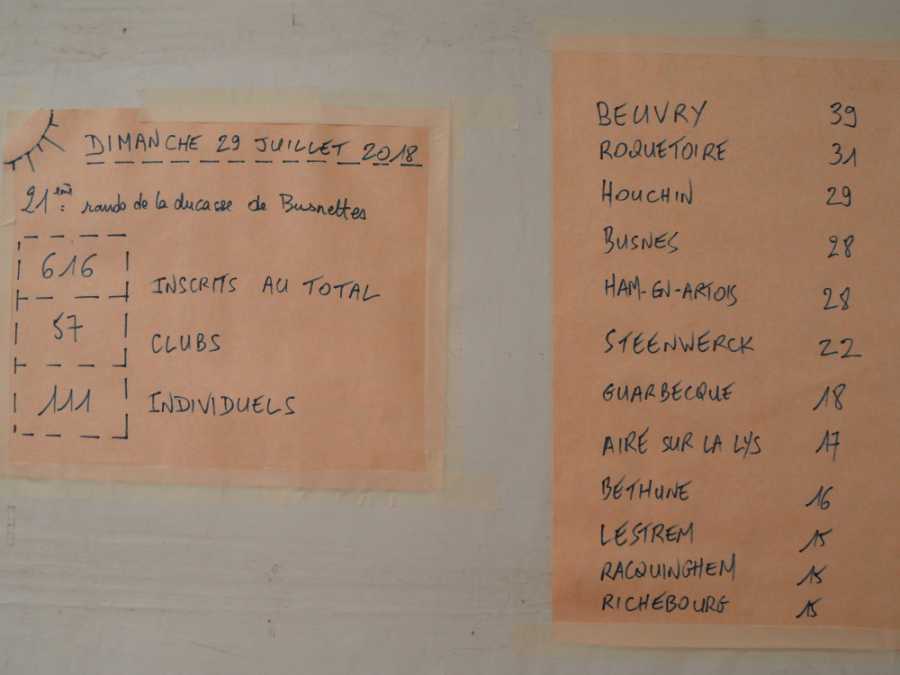 DIMANCHE 29 JUILLET 2018
21ème: rando de la ducasse de Busnettes
616 INSCRITS AU TOTAL
57 CLUBS
111 INDIVIDUELS
BEUVRY 39
ROQUETOIRE 31
HOUCHIN 29
BUSNES 28
HAM-EN-ARTOIS 28
STEENWERCK 22
GUARBECQUE 18
AIRE SUR LA LYS 17
BÉTHUNE 16
LESTREM 15
RACQUINGHEM 15
RICHEBOURG 15